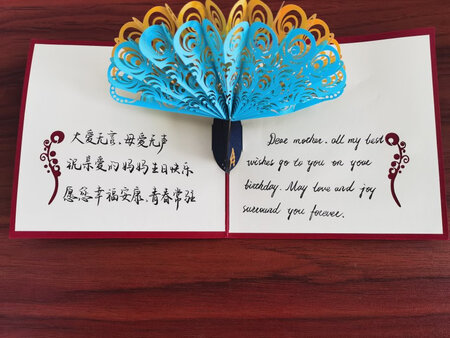 大爱无言，母爱无声
祝亲爱的妈妈生日快乐
愿您幸福安康，青春常驻
Dear mother. all my best
wishes go to you on your
birthday. May love and joy
surround you forever.